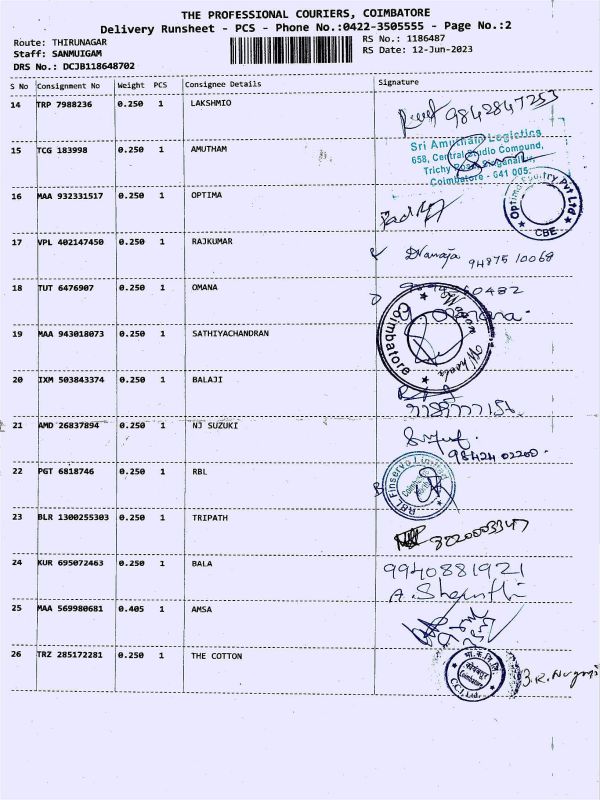 THE PROFESSIONAL COURIERS, COIMBATORE
Delivery Runsheet - PCS - Phone No.:0422-3505555 - Page No.:2
Route: THIRUNAGAR
RS No.: 1186487
Staff: SANMUIGAM
RS Date: 12-Jun-2023
DRS No.: DCJB118648702
S No Consignment No Weight PCS Consignee Details Signature
14 TRP 7988236 0.250 1 LAKSHMIO
9842847253
15 TCG 183998 0.250 1 AMUTHAM
Sri Amutham Logistics
658, Central Studio Compound,
Trichy Road, Singanallur,
Coimbatore - 641 005.
16 MAA 932331517 0.250 1 OPTIMA
Optima Poultry Pvt Ltd
CBE
17 VPL 402147450 0.250 1 RAJKUMAR
94875 10068
18 TUT 6476907 0.250 1 OMANA
19 MAA 943018073 0.250 1 SATHIYACHANDRAN
Coimbatore
20 IXM 503843374 0.250 1 BALAJI
21 AMD 26837894 0.250 1 NJ SUZUKI
98424 02200
22 PGT 6818746 0.250 1 RBL
RBL Finserve Limited
23 BLR 1300255303 0.250 1 TRIPATH
24 KUR 695072463 0.250 1 BALA
9940881921
A. Shanthi
25 MAA 569980681 0.405 1 AMSA
26 TRZ 285172281 0.250 1 THE COTTON
Coimbatore